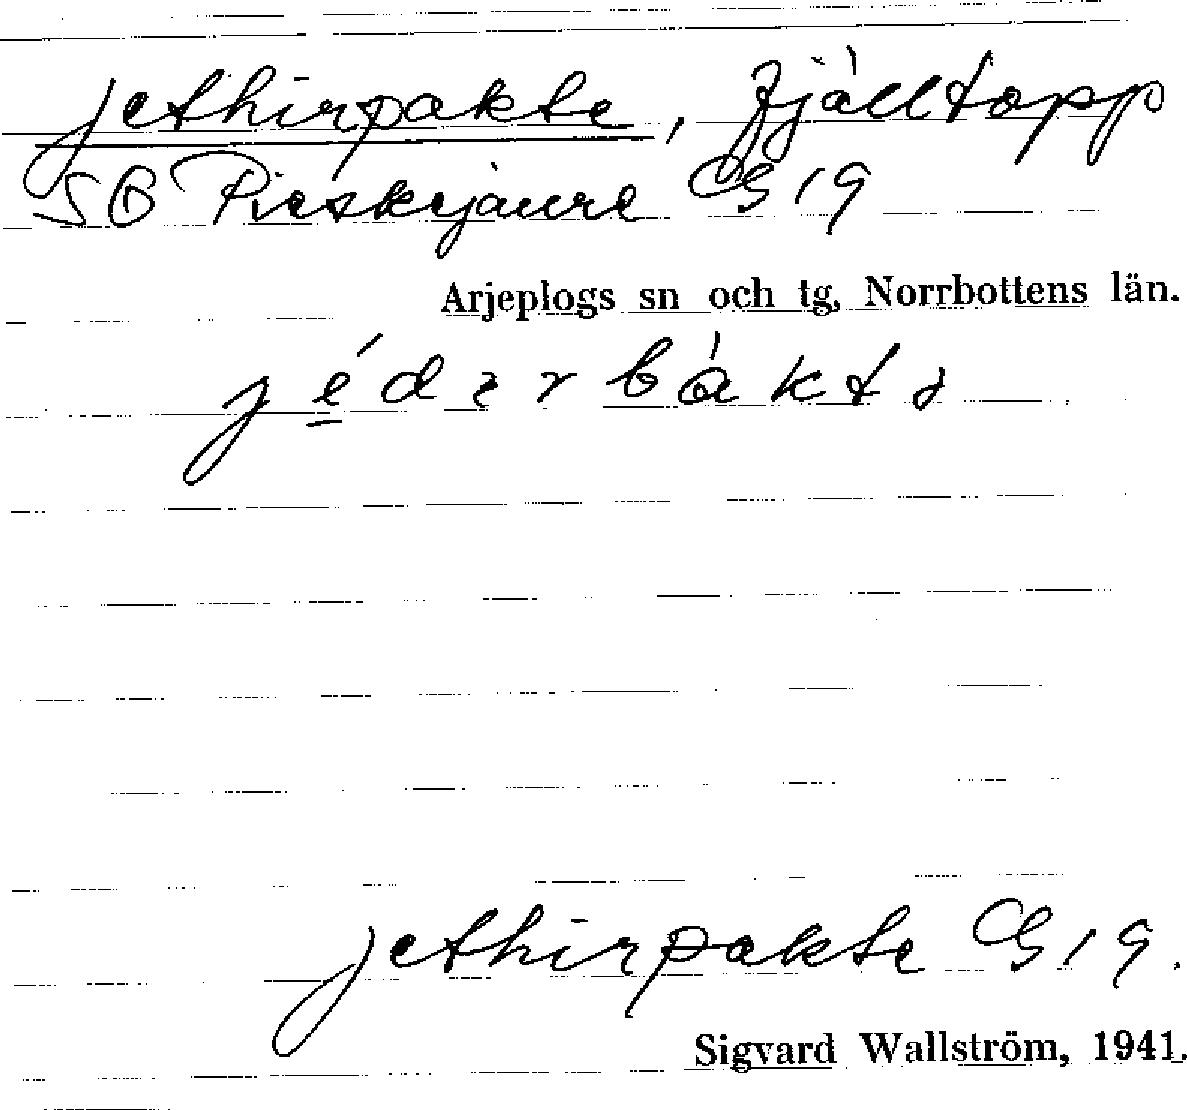 Jethirpakte, fjälltopp
SO Pieskejaure CG 19
Arjeplogs sn och tg, Norrbottens län.
Jethirpakte CG 19.
Sigvard Wallström, 1941.